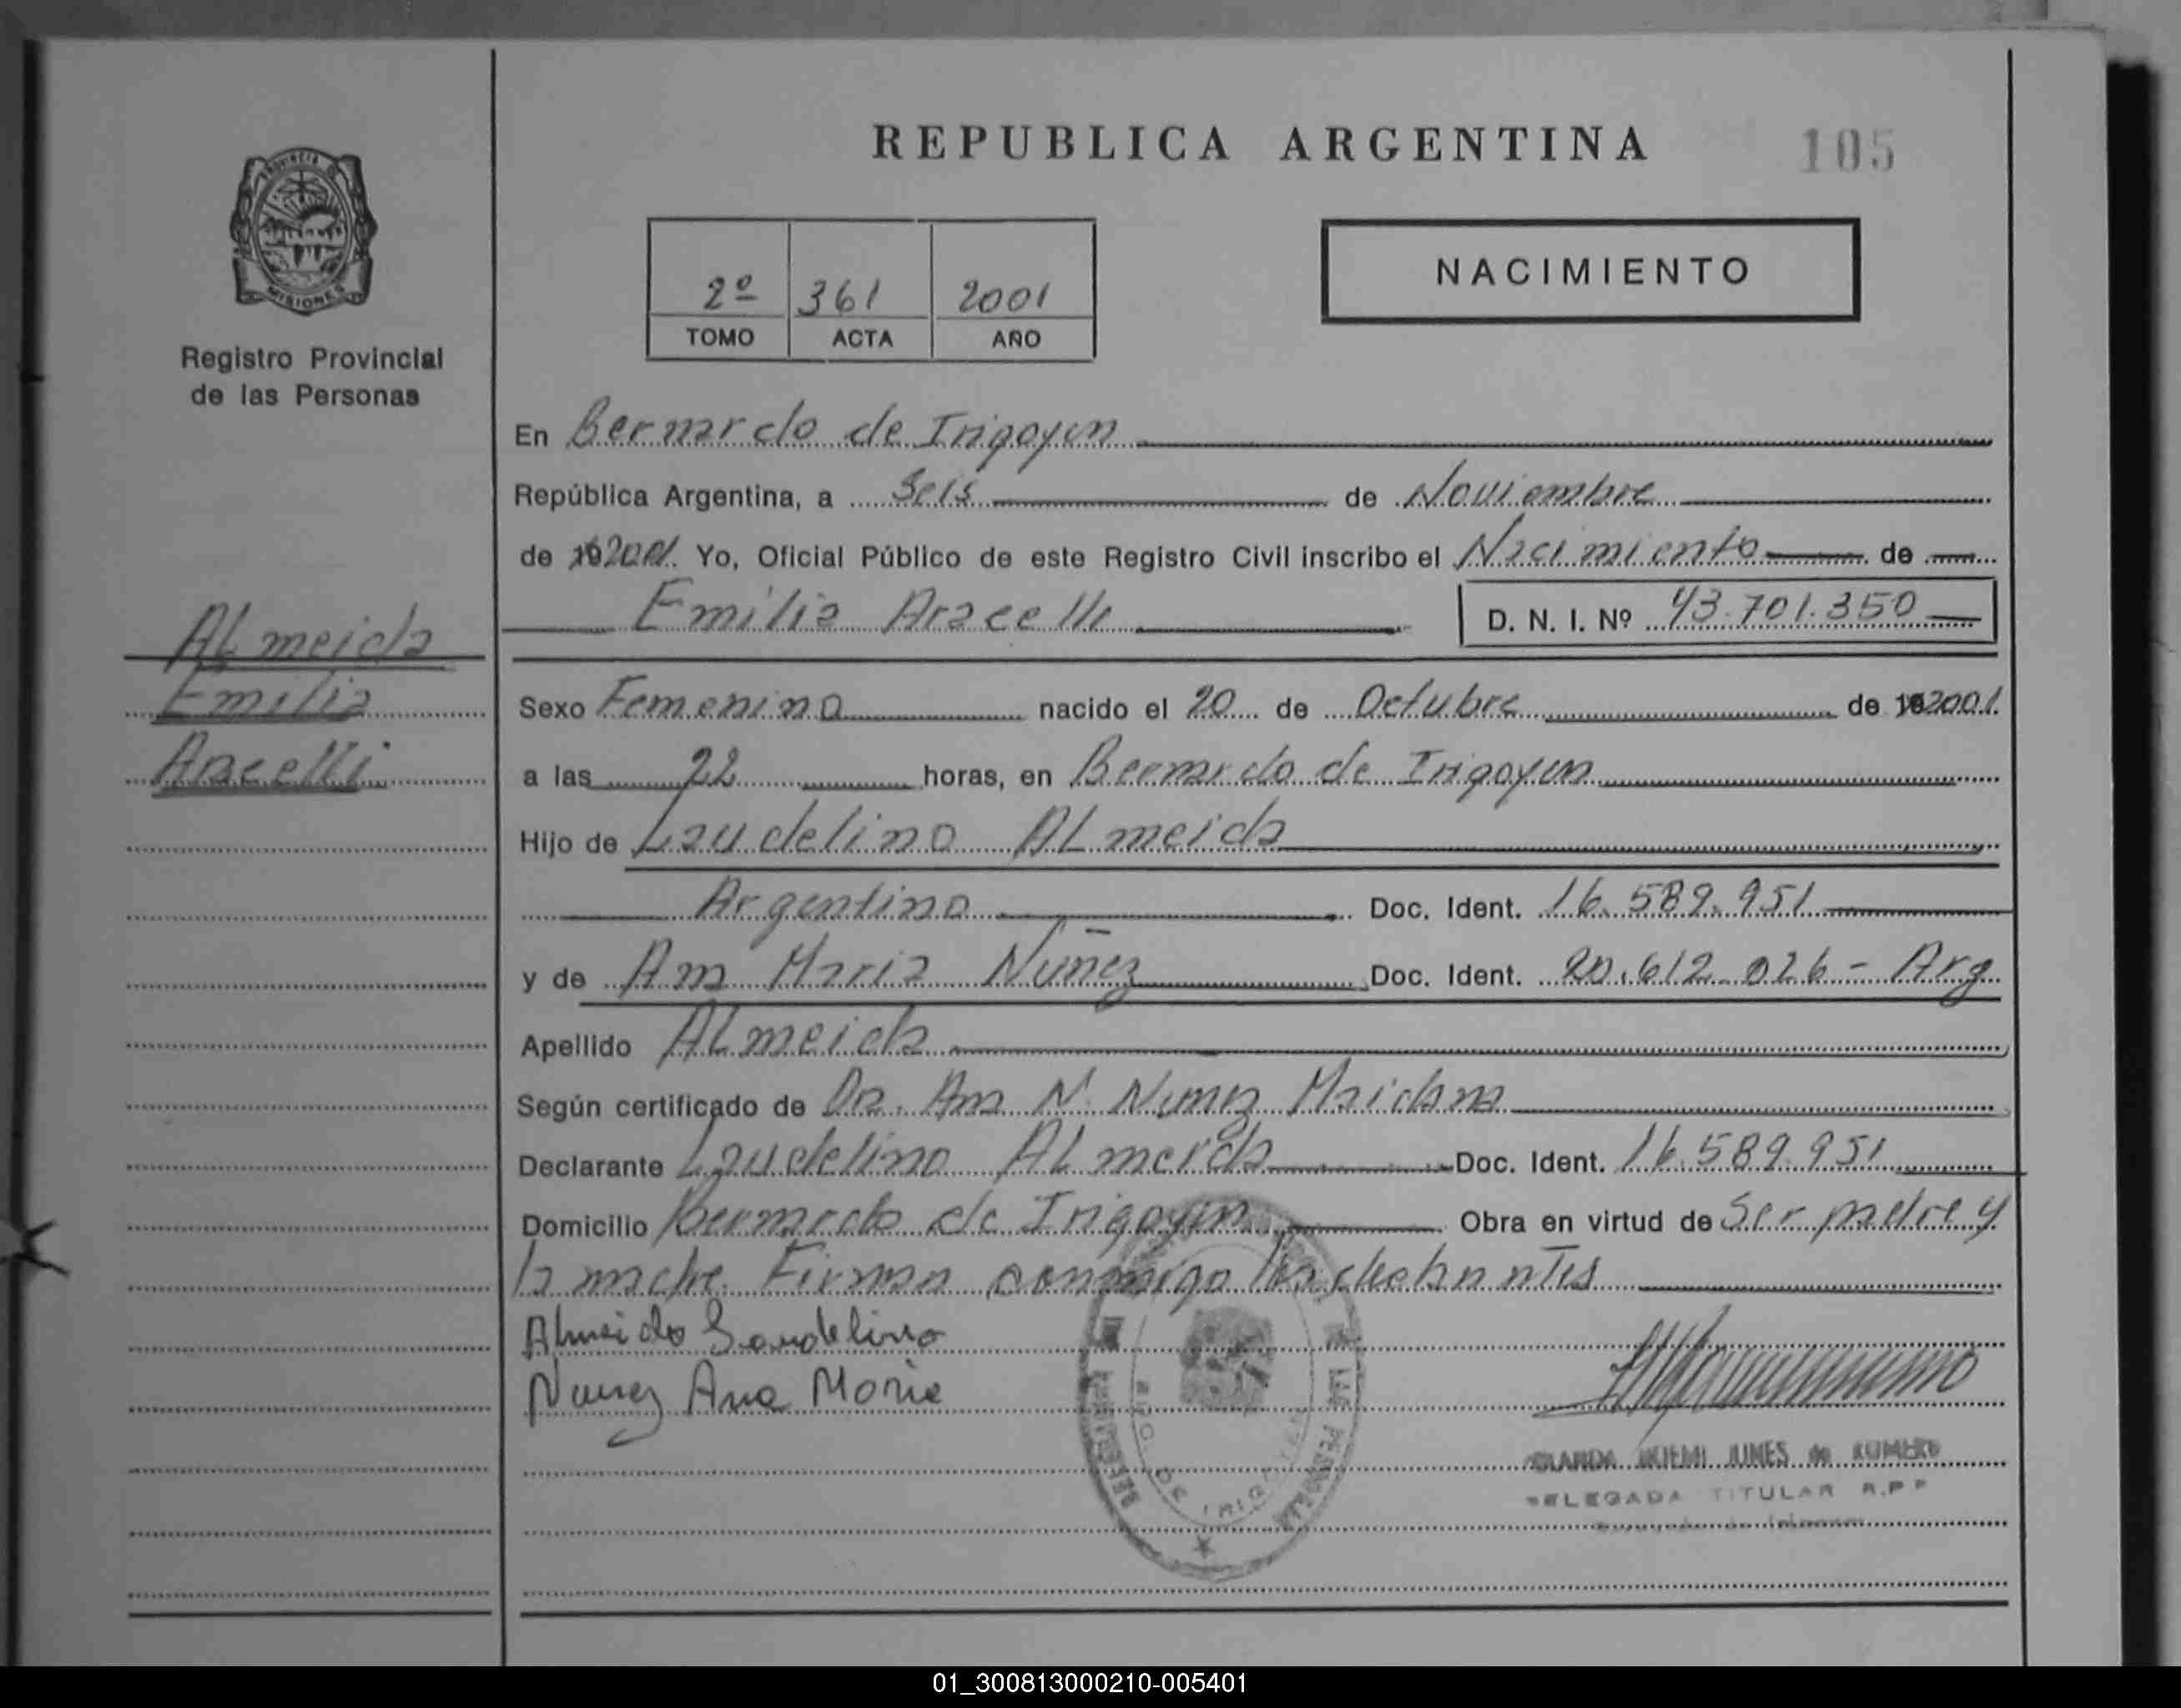 REPUBLICA ARGENTINA
105
PROVINCIA
MISIONES
Registro Provincial
de las Personas
2º 361 2001
TOMO ACTA AÑO
NACIMIENTO
En Bernardo de Irigoyen
República Argentina, a Seis de Noviembre
de 192001. Yo, Oficial Público de este Registro Civil inscribo el Nacimiento de
Emilia Aracelli D. N. I. Nº 43.701.350
Almeida
Emilia
Aracelli
Sexo Femenino nacido el 20 de Octubre de 192001
a las 22 horas, en Bernardo de Irigoyen
Hijo de Laudelino Almeida
Argentino Doc. Ident. 16.589.951
y de Ana Maria Nuñez Doc. Ident. 20.612.026 - Arg
Apellido Almeida
Según certificado de Dra. Ana N. Nuñez Maidana
Declarante Laudelino Almeida Doc. Ident. 16.589.951
Domicilio Bernardo de Irigoyen Obra en virtud de Ser padre y
la madre. Firman conmigo
Almeida Laudelino
Nuñez Ana Maria
NOEMI de ROMERO
DELEGADA TITULAR R.P.P
01_300813000210-005401